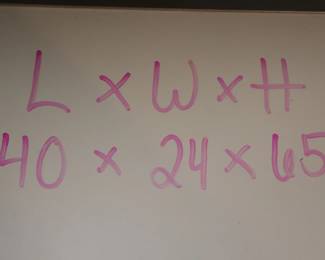 L x W x H
40 x 24 x 65